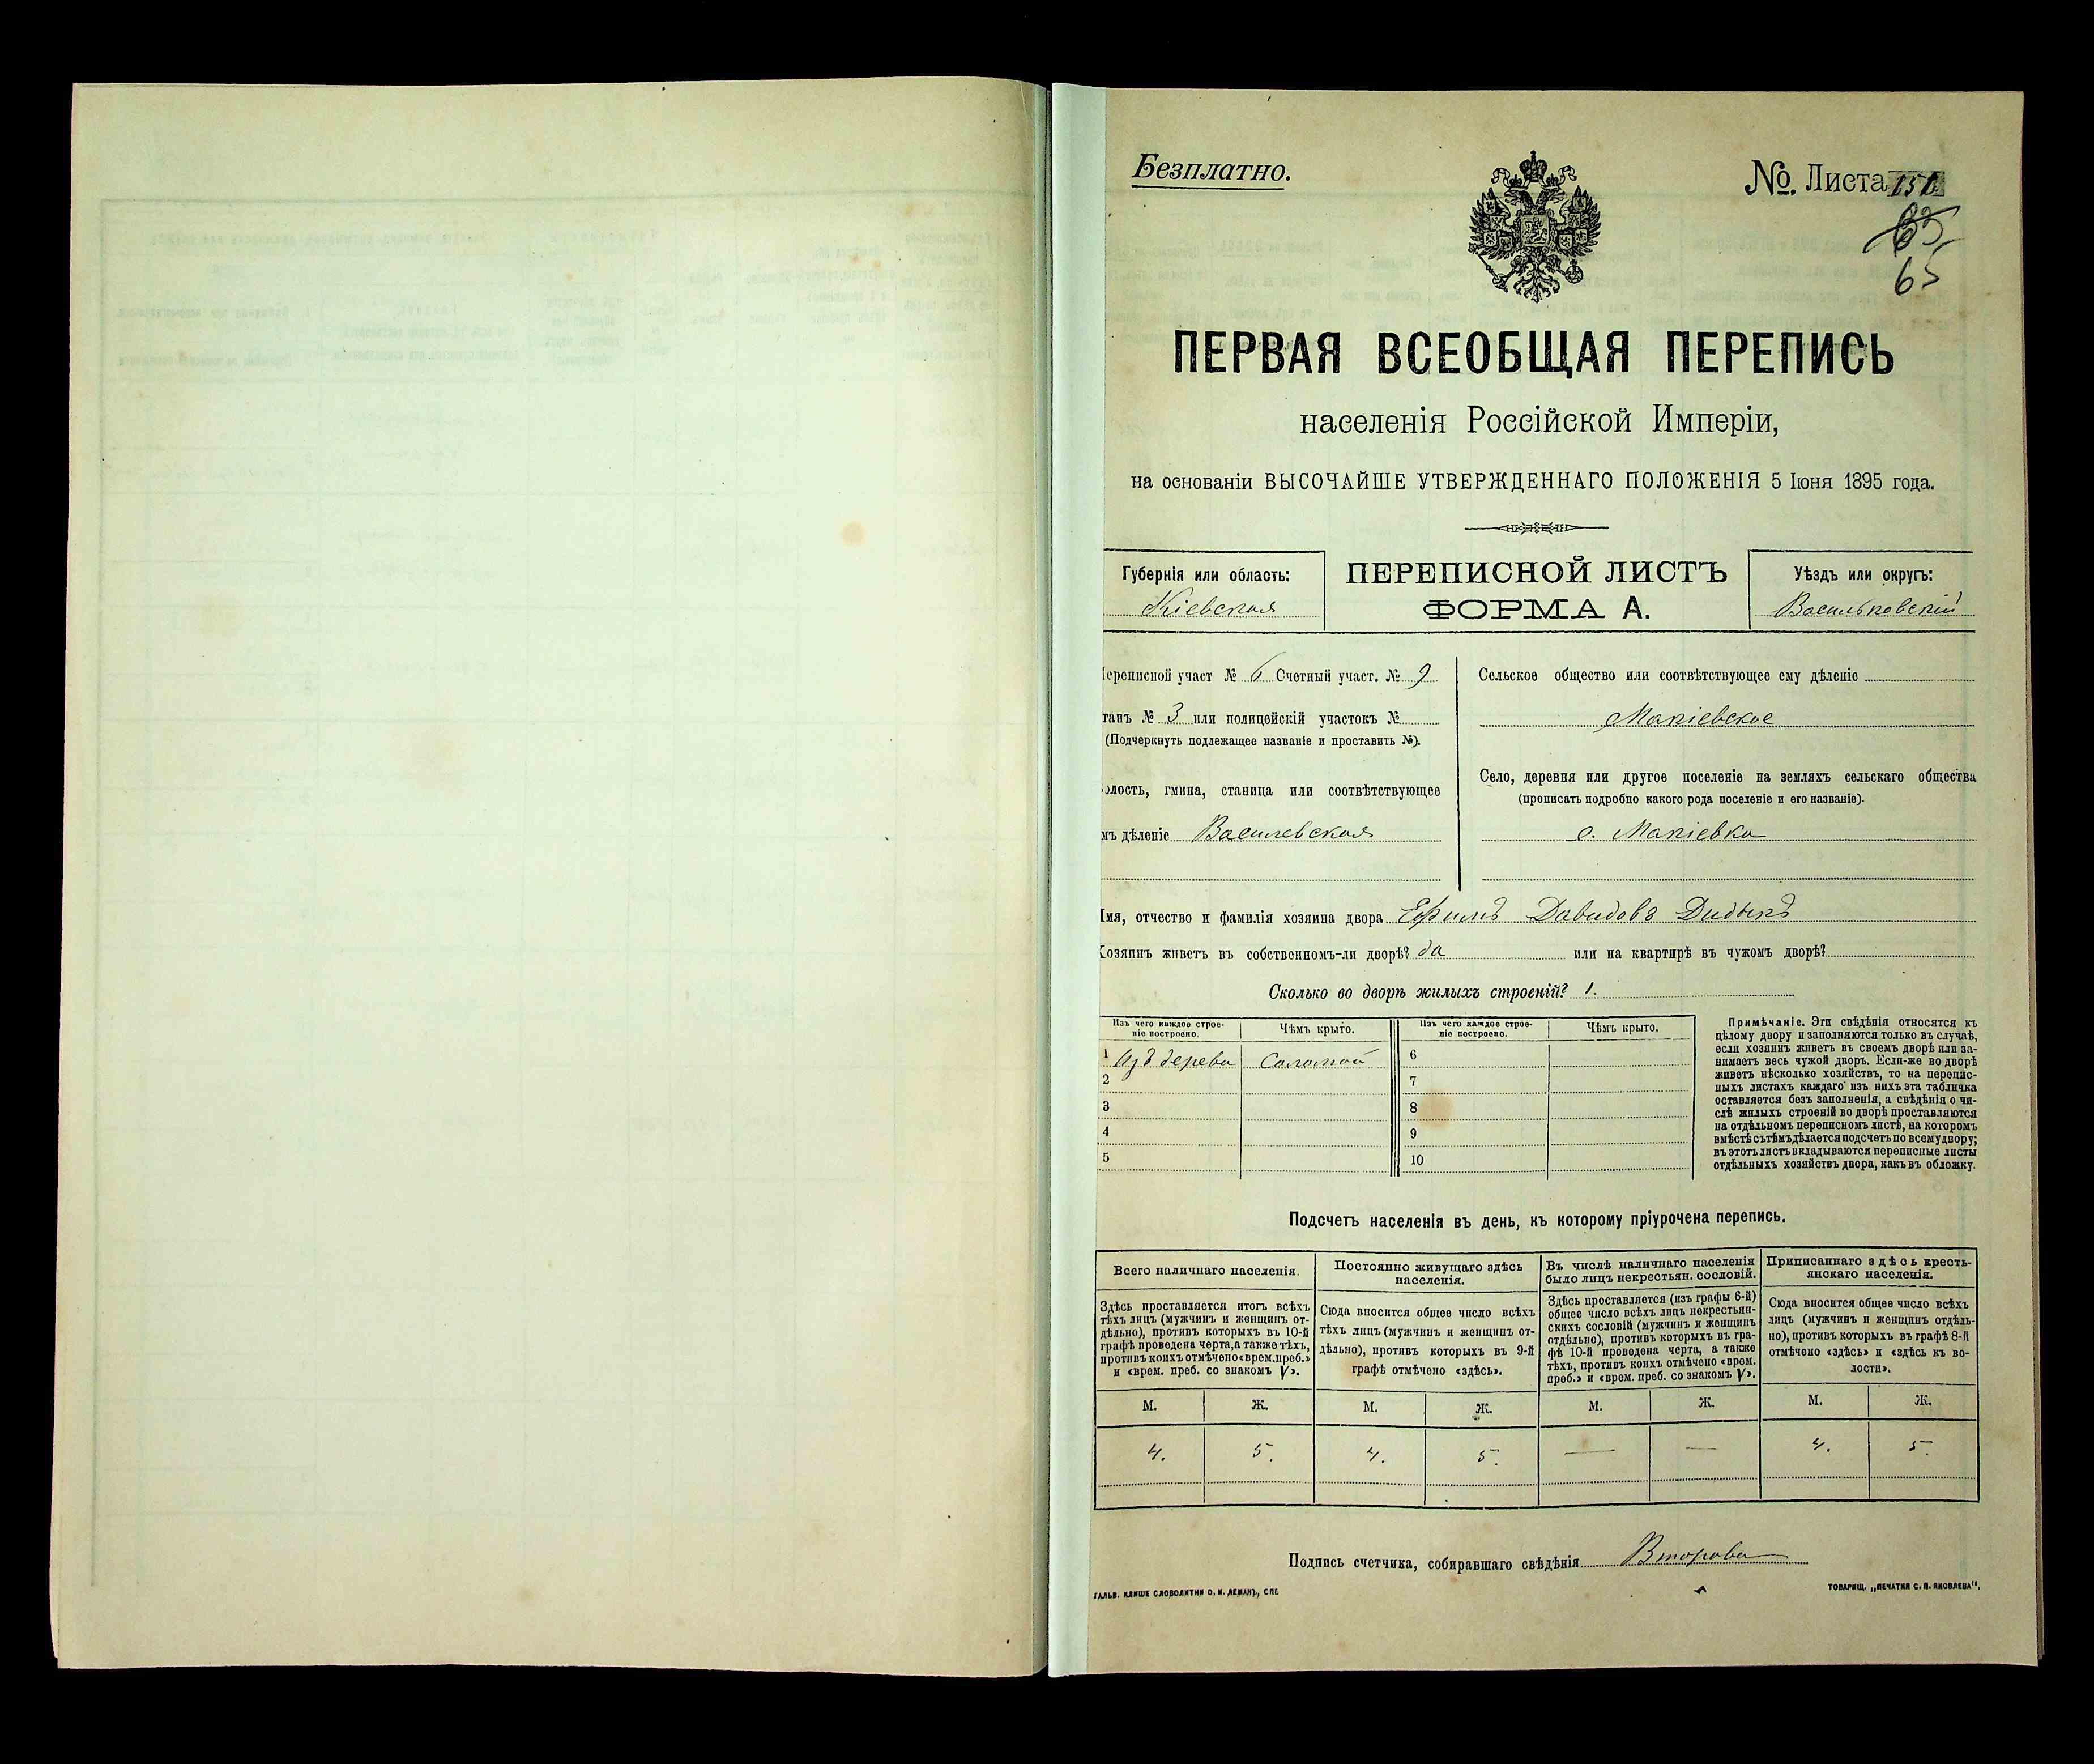 Безплатно.
№. Листа
65
ПЕРВАЯ ВСЕОБЩАЯ ПЕРЕПИСЬ
населенія Россійской Имперіи,
на основаніи ВЫСОЧАЙШЕ УТВЕРЖДЕННАГО ПОЛОЖЕНІЯ 5 Іюня 1895 года.
Губернія или область:
Кіевская
ПЕРЕПИСНОЙ ЛИСТЪ
ФОРМА А.
Уѣздъ или округъ:
Васильковскій
ереписной участ № 6 Счетный участ. № 9
танъ № 3 или полицейскій участокъ №
(Подчеркнуть подлежащее названіе и проставить №).
лость, гмина, станица или соотвѣтствующее
мъ дѣленіе Василевская
Сельское общество или соотвѣтствующее ему дѣленіе
Макіевское
Село, деревня или другое поселеніе на земляхъ сельскаго общества
(прописать подробно какого рода поселеніе и его названіе).
с. Макіевка
Имя, отчество и фамилія хозяина двора Ефимъ Давидовъ Дидыкъ
Хозяинъ живетъ въ собственномъ-ли дворѣ? да или на квартирѣ въ чужомъ дворѣ?
Сколько во дворѣ жилыхъ строеній? 1.
Изъ чего каждое строе-
ніе построено.
Чѣмъ крыто.
Изъ чего каждое строе-
ніе построено.
Чѣмъ крыто.
1 Изъ дерева Соломой 6
2 7
3 8
4 9
5 10
Примѣчаніе. Эти свѣдѣнія относятся къ
цѣлому двору и заполняются только въ случаѣ,
если хозяинъ живетъ въ своемъ дворѣ или за-
нимаетъ весь чужой дворъ. Если-же во дворѣ
живетъ нѣсколько хозяйствъ, то на перепис-
ныхъ листахъ каждаго изъ нихъ эта табличка
оставляется безъ заполненія, а свѣдѣнія о чи-
слѣ жилыхъ строеній во дворѣ проставляются
на отдѣльномъ переписномъ листѣ, на которомъ
вмѣстѣ съ тѣмъ дѣлается подсчетъ по всему двору;
въ этотъ листъ вкладываются переписные листы
отдѣльныхъ хозяйствъ двора, какъ въ обложку.
Подсчетъ населенія въ день, къ которому пріурочена перепись.
Всего наличнаго населенія.
Здѣсь проставляется итогъ всѣхъ
тѣхъ лицъ (мужчинъ и женщинъ от-
дѣльно), противъ которыхъ въ 10-й
графѣ проведена черта, а также тѣхъ,
противъ коихъ отмѣчено «врем. преб.»
и «врем. преб. со знакомъ V».
Постоянно живущаго здѣсь
населенія.
Сюда вносится общее число всѣхъ
тѣхъ лицъ (мужчинъ и женщинъ от-
дѣльно), противъ которыхъ въ 9-й
графѣ отмѣчено «здѣсь».
Въ числѣ наличнаго населенія
было лицъ некрестьян. сословій.
Здѣсь проставляется (изъ графы 6-й)
общее число всѣхъ лицъ некрестьян-
скихъ сословій (мужчинъ и женщинъ
отдѣльно), противъ которыхъ въ гра-
фѣ 10-й проведена черта, а также
тѣхъ, противъ коихъ отмѣчено «врем.
преб.» и «врем. преб. со знакомъ V».
Приписаннаго здѣсь кресть-
янскаго населенія.
Сюда вносится общее число всѣхъ
лицъ (мужчинъ и женщинъ отдѣль-
но), противъ которыхъ въ графѣ 8-й
отмѣчено «здѣсь» и «здѣсь къ во-
лости».
М. Ж. М. Ж. М. Ж. М. Ж.
4. 5. 4. 5. — — 4. 5.
Подпись счетчика, собиравшаго свѣдѣнія
ГАЛЬВ. КЛИШЕ СЛОВОЛИТНИ О. И. ЛЕМАНЪ, СПБ.
ТОВАРИЩ. „ПЕЧАТНЯ С. П. ЯКОВЛЕВА".